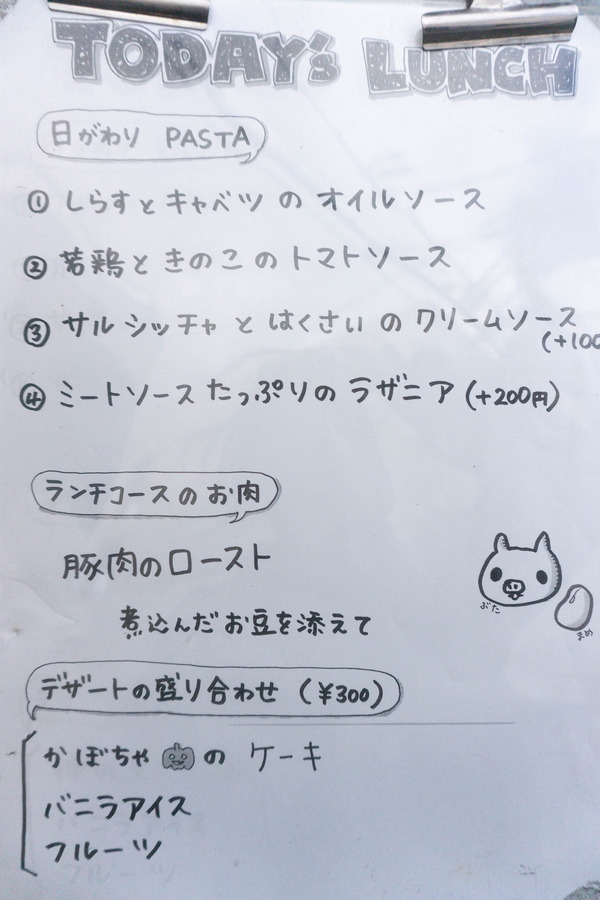 TODAY's LUNCH
日がわり PASTA
① しらすとキャベツ の オイルソース
② 若鶏と きのこ の トマトソース
③ サルシッチャ と はくさい の クリームソース
(+100
④ ミートソース たっぷりの ラザニア (+200円)
ランチコースの お肉
豚肉のロースト
煮込んだ お豆を添えて
ぶた
まめ
デザートの盛り合わせ (¥300)
かぼちゃ の ケーキ
バニラアイス
フルーツ